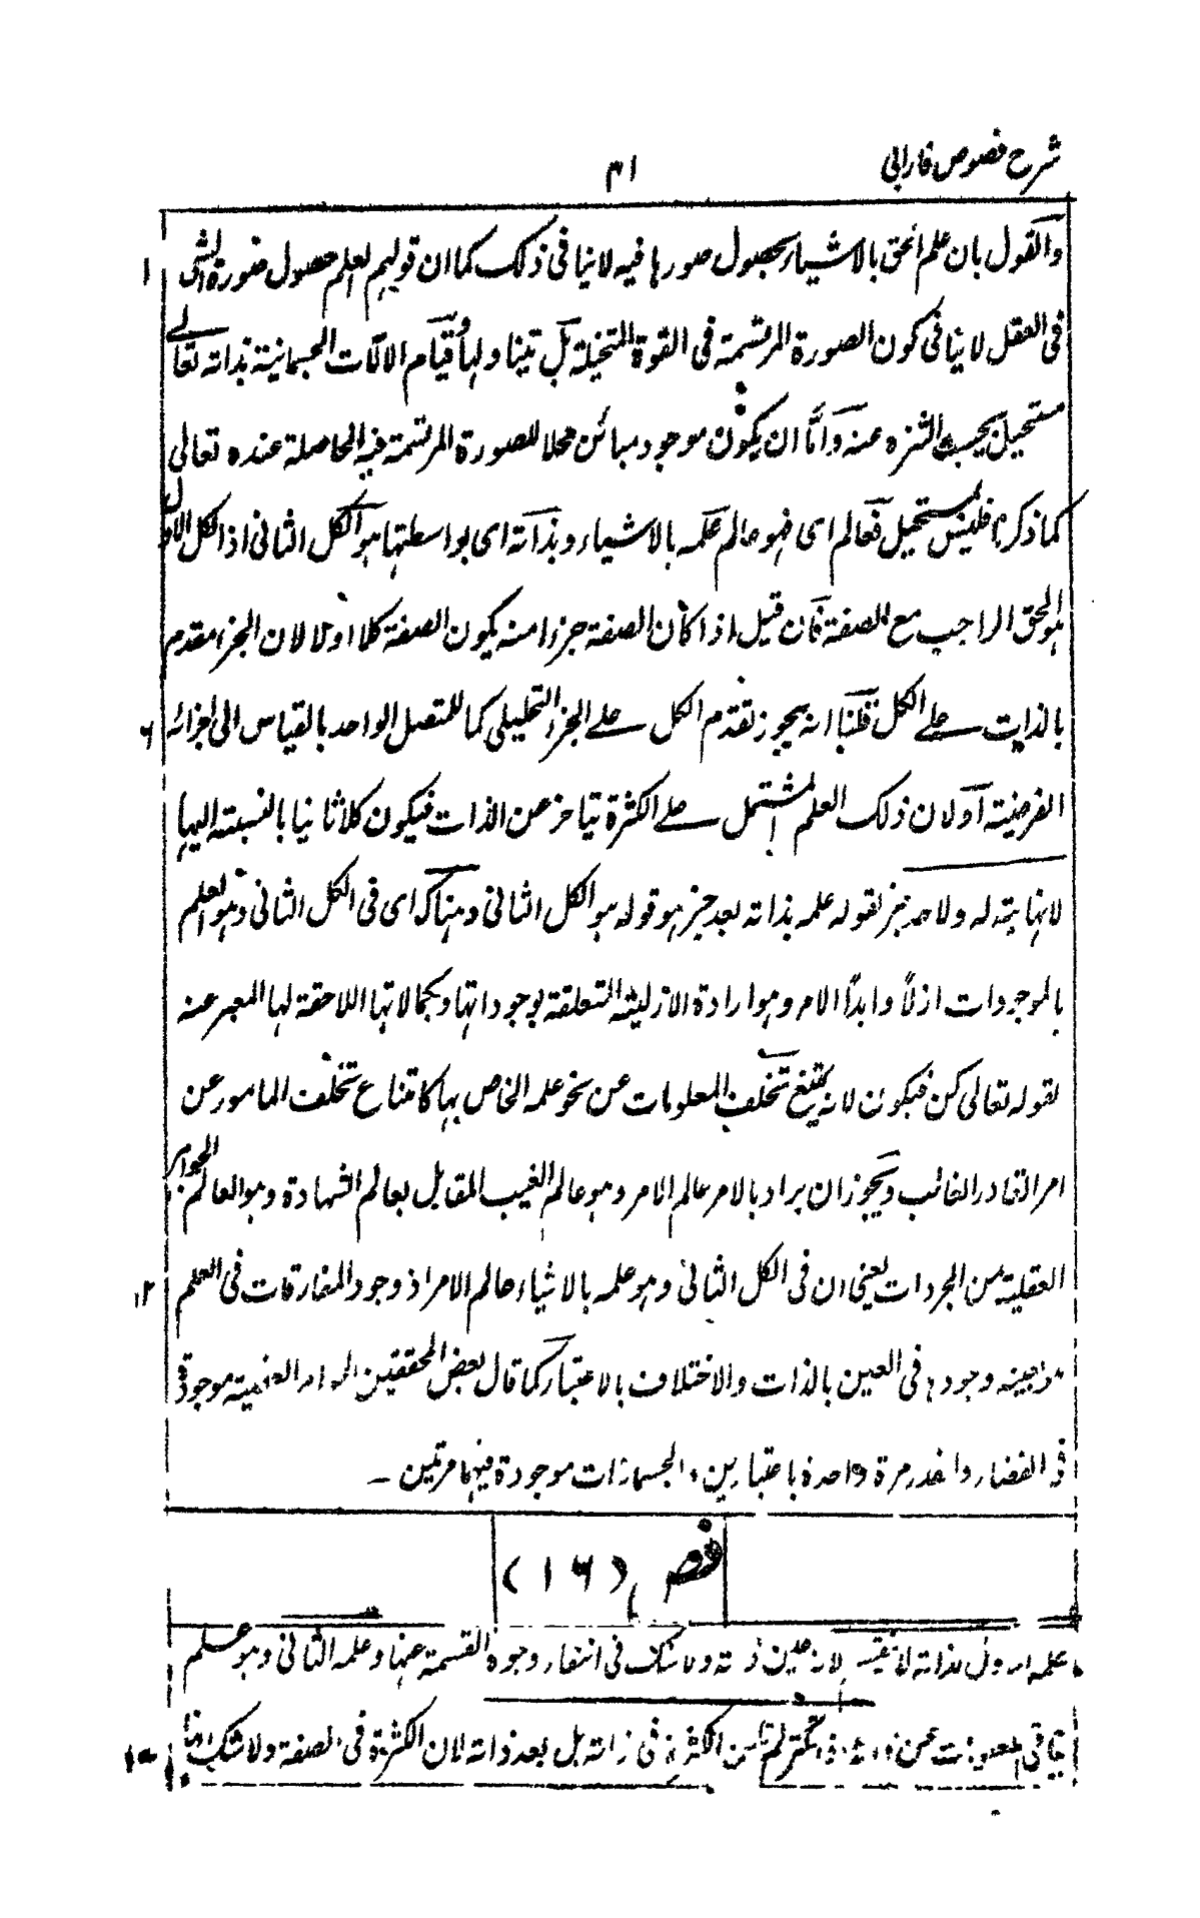 شرح فصوص فارابی
۳۱
والقول بان علم الحق بالاشیاء بحصول صورہا فیہ لا ینافی ذلک کما ان قولہم العلم حصول صورۃ الشی
۱
فی العقل لا ینافی کون الصورۃ المرتسمۃ فی القوۃ المتخیلۃ بل یتناولہا وقیام الآلات الجسمانیۃ بذاتہ تعالے
مستحیل یجب التنزہ عنہ واما ان یکون موجود مبائن محلا للصورۃ المرتسمۃ فیہ الحاصلۃ عندہ تعالی
کما ذکرنا فلیس بمستحیل فعالم ای فہو عالم علمہ بالاشیاء وبذاتہ ای بواسطتہا ہو الکل الثانی اذ الکل الاول
ہو الحق الواجب مع الصفۃ فان قیل اذا کان الصفۃ جزءا منہ یکون الصفۃ کلا اولا لان الجزء مقدم
بالذات علے الکل قلنا انہ یجوز تقدم الکل علے الجزء التحلیلی کما للمتصل الواحد بالقیاس الی اجزائہ
۶
الفرضیۃ او لان ذلک العلم المشتمل علے الکثرۃ یتاخر عن الذات فیکون کلا ثانیا بالنسبتہ الیہا
لا نہایتہ لہ ولا حد خبر لقولہ علمہ بذاتہ بعد خبر ہو قولہ ہو الکل الثانی وہناک ای فی الکل الثانی وہو العلم
بالموجودات ازلاً وابداً الامر وہو ارادۃ الازلیتہ المتعلقۃ بوجوداتہا وبکمالاتہا اللاحقۃ لہا المعبر عنہ
بقولہ تعالی کن فیکون لانہ یمتنع تخلف المعلومات عن نحو علمہ الخاص بہا کامتناع تخلف المامور عن
امر القادر الغائب ویجوز ان یراد بالامر عالم الامر وہو عالم الغیب المقابل بعالم الشہادۃ وہو العالم الجواہر
العقلیۃ من المجردات یعنی ان فی الکل الثانی وہو علمہ بالاشیاء عالم الامر اذ وجود المفارقات فی العلم
۱۲
وجودہا فی العین بالذات والاختلاف بالاعتبار کما قال بعض المحققین العینیۃ موجودۃ
فی القضاء والقدر مرۃ واحدۃ باعتبارین والجسمانیات موجودۃ فیہما مرتین ۔
فص (۱۶)
علمہ الاول بذاتہ لا ینقسم لانہ عین ذاتہ ولا شک فی انتفاء وجوہ القسمۃ عنہا وعلمہ الثانی وہو علمہ
بباقی المعلومات عن ذاتہ اذا تکثر لم یکن الکثرۃ فی ذاتہ بل بعد ذاتہ لان الکثرۃ فی الصفۃ ولا شک انہا